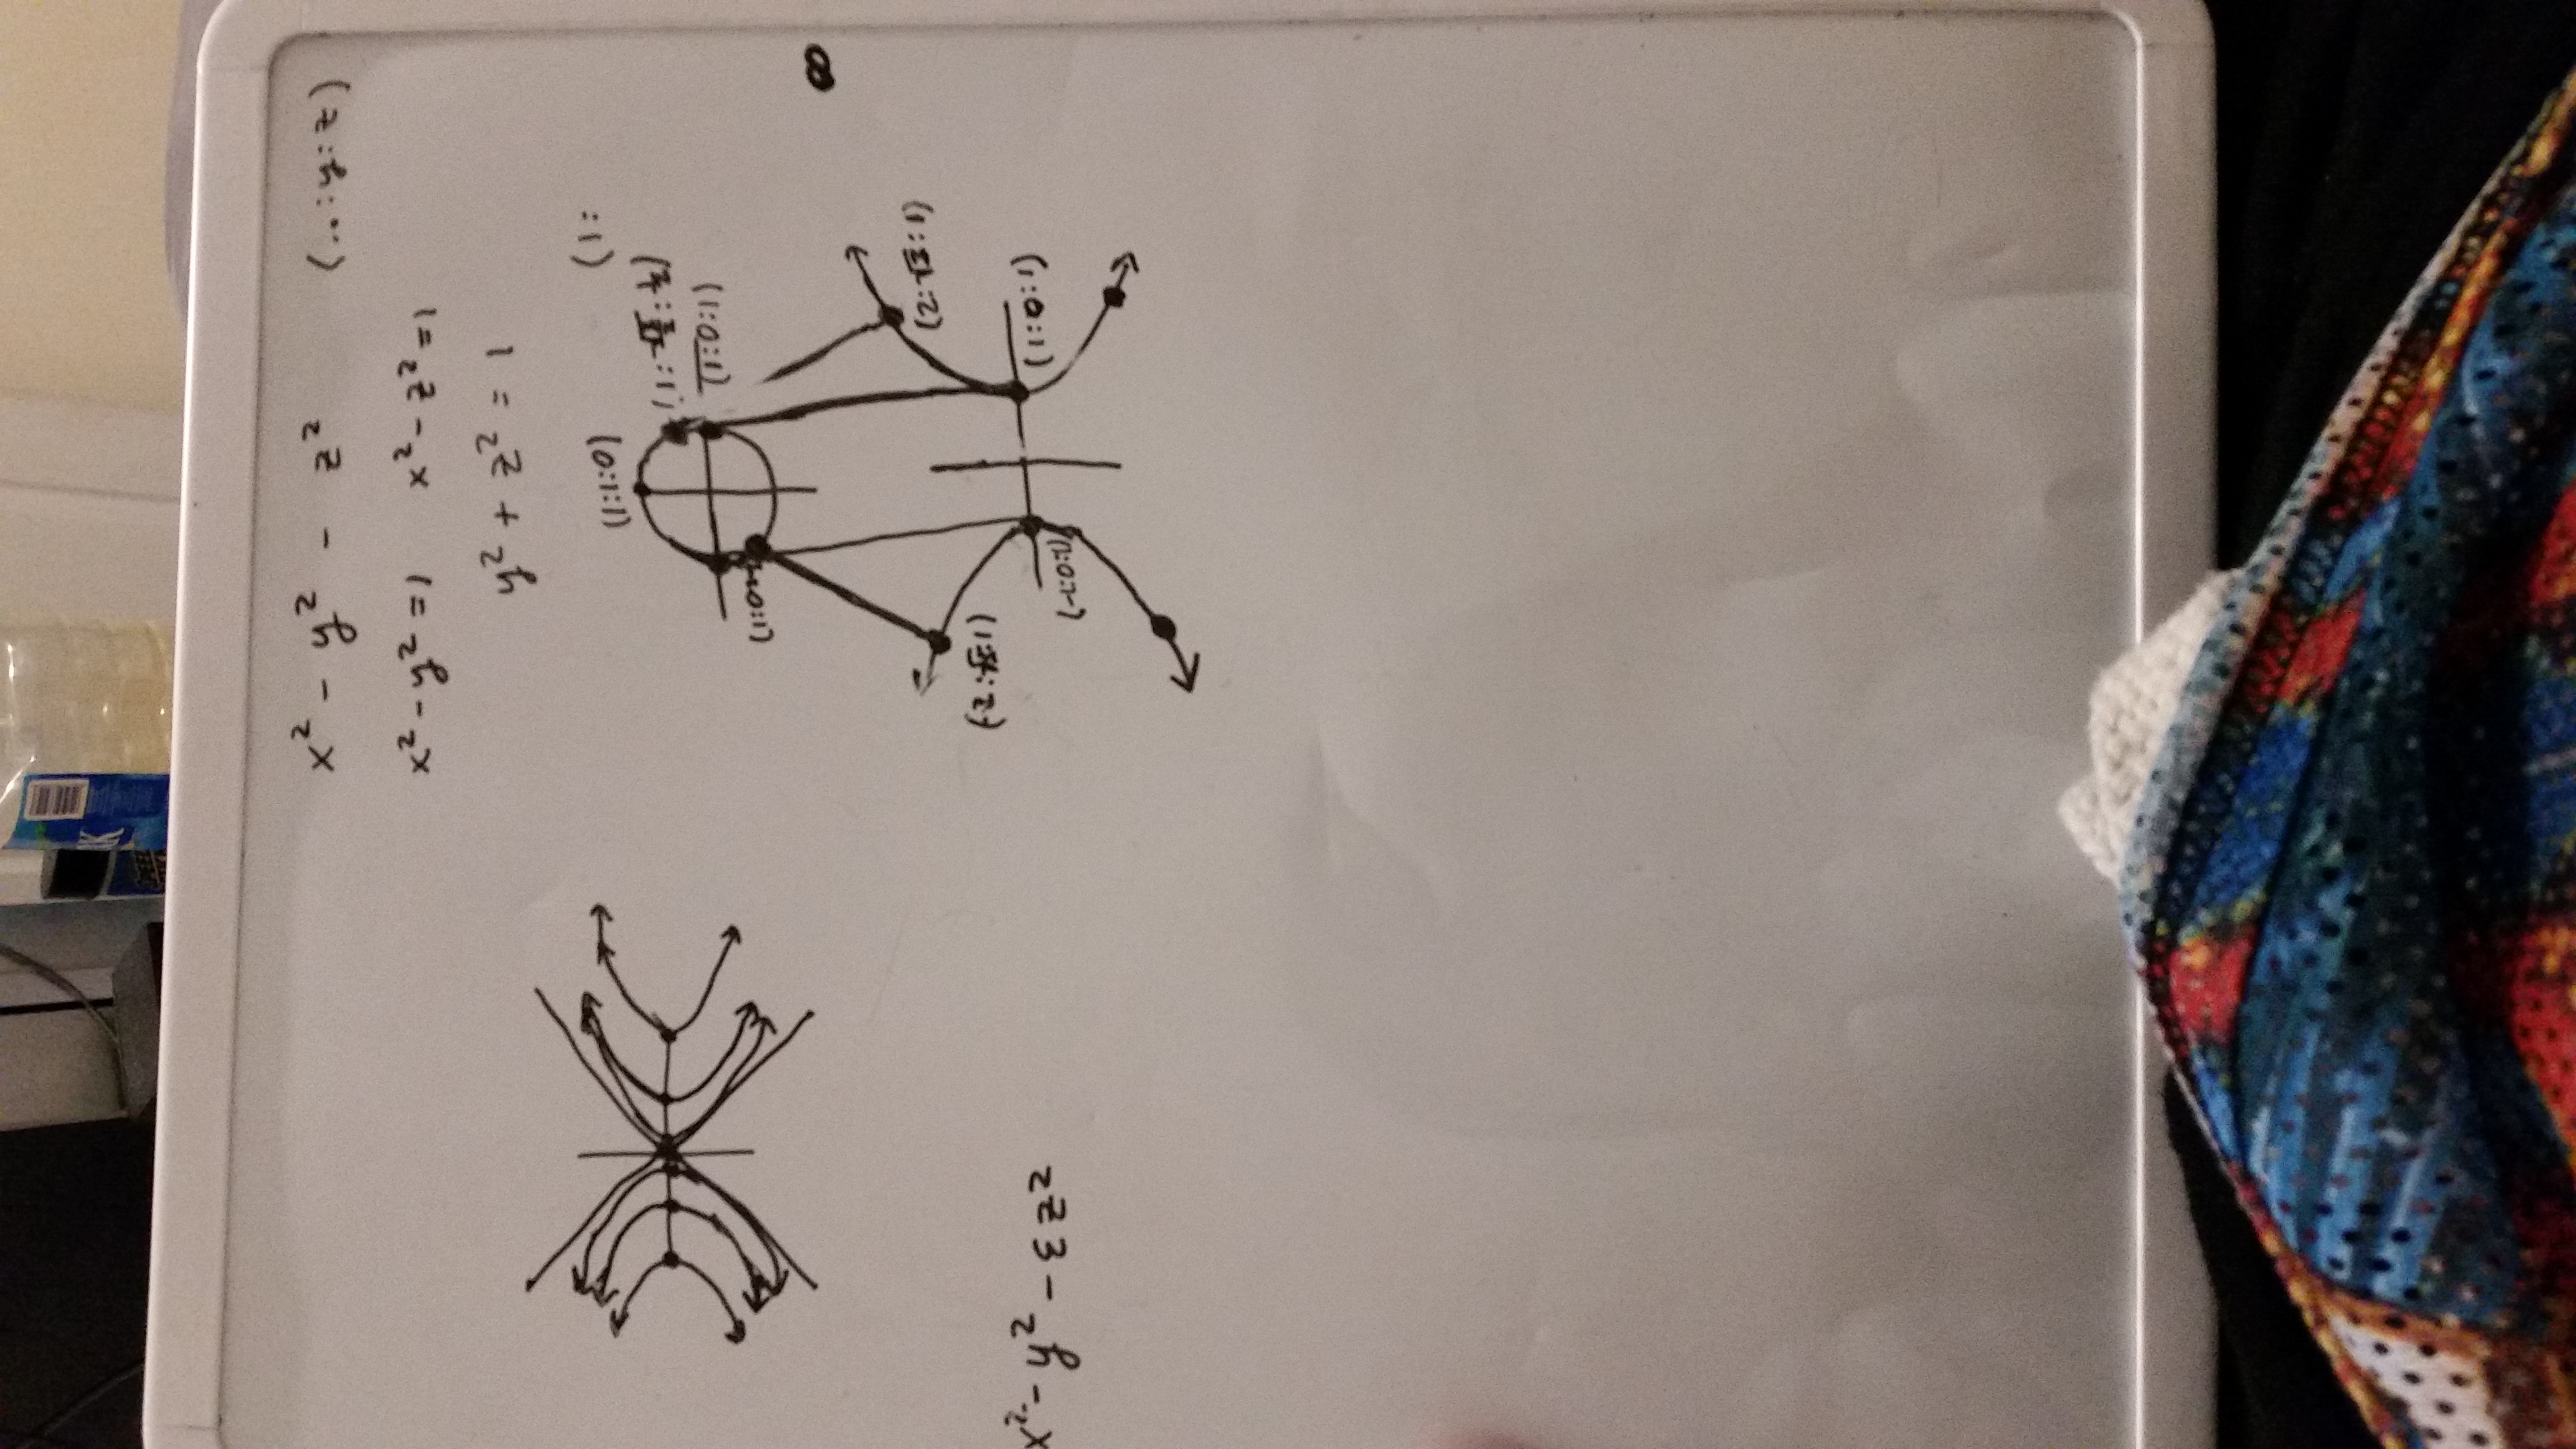 K
SPEED
x² - y² - z² (..:y:z)
x² - y² = 1 x² - z² = 1
y² + z² = 1
(1:
(1:1:0)
(1:√3/2:1/2)
(1:0:1)
(1:0
∞
(2:√3:1)
(-2:√3:1)
(1:0:1)
(-1:0:1)
x² - y² - εz²